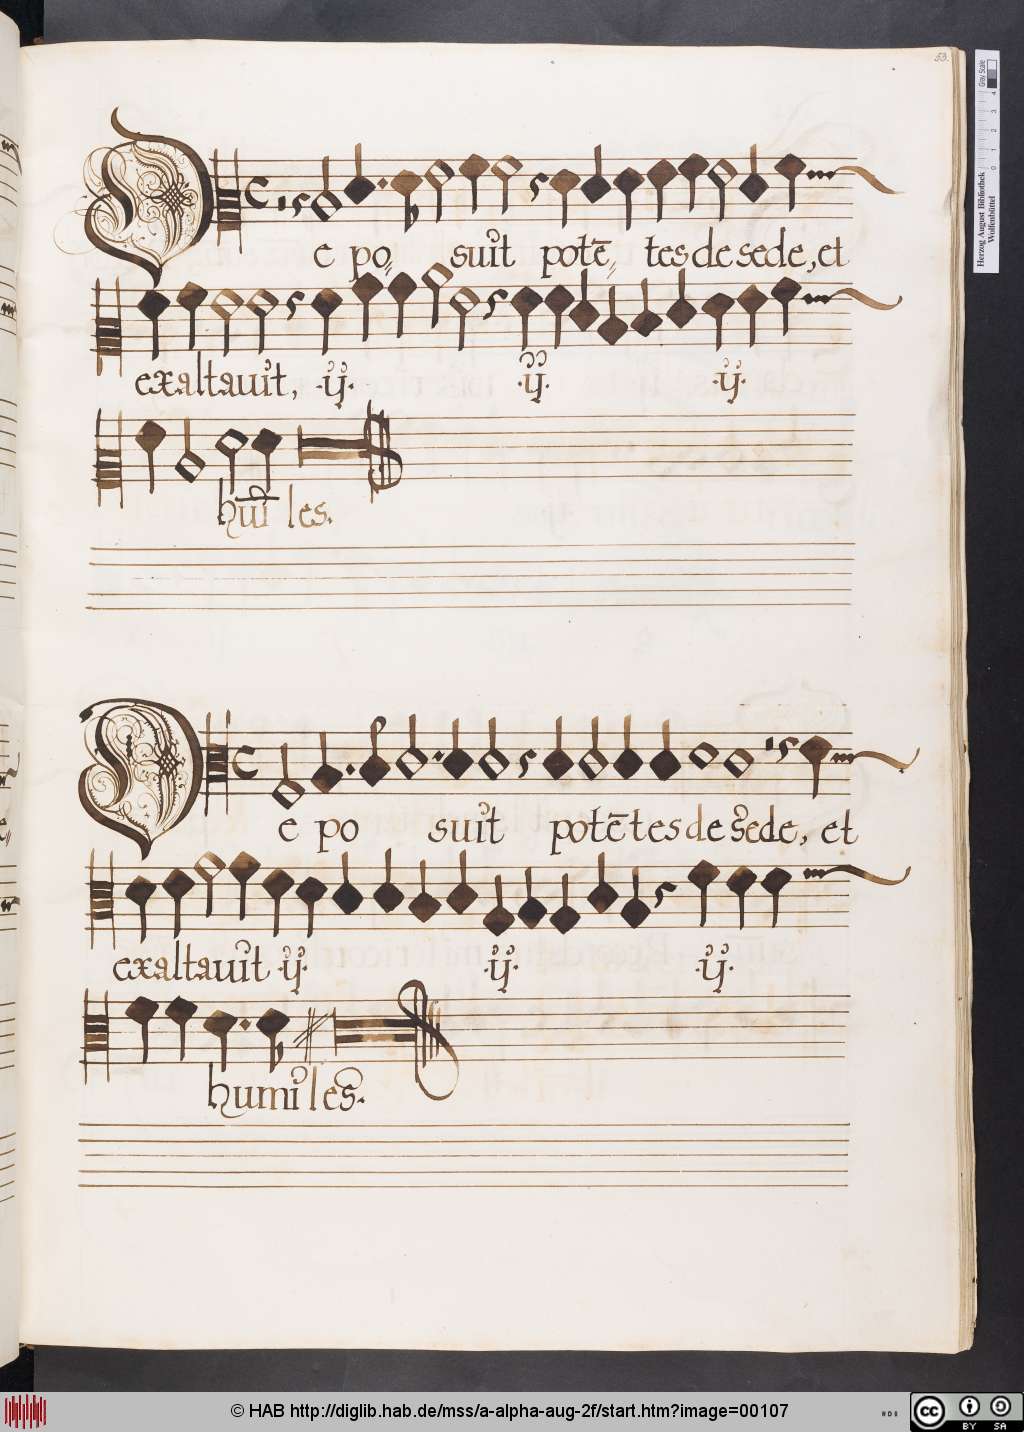 53.
De po suit potē tes de sede, et
exaltavit, ·ij· ·ij· ·ij·
hūi les.
De po suit potē tes de sede, et
exaltavit ·ij· ·ij· ·ij·
humi les.
Herzog August Bibliothek
Wolfenbüttel
0 1 2 3 4
Gray Scale
© HAB http://diglib.hab.de/mss/a-alpha-aug-2f/start.htm?image=00107
cc BY SA